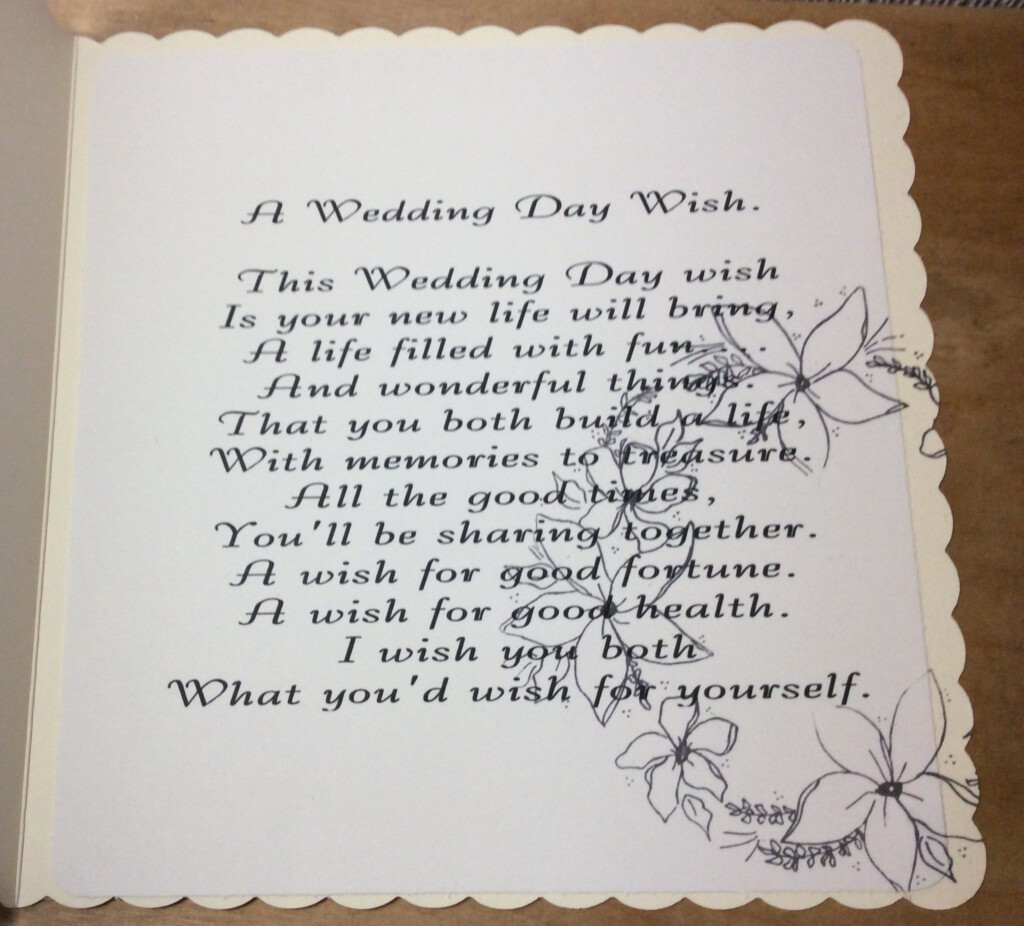 A Wedding Day Wish.
This Wedding Day wish
Is your new life will bring,
A life filled with fun....
And wonderful things.
That you both build a life,
With memories to treasure.
All the good times,
You'll be sharing together.
A wish for good fortune.
A wish for good health.
I wish you both
What you'd wish for yourself.